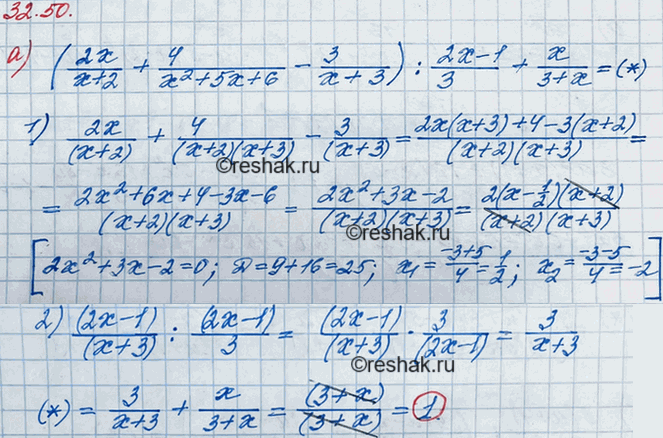 32.50.
а) (2x/(x+2) + 4/(x²+5x+6) - 3/(x+3)) : (2x-1)/3 + x/(3+x) = (*)
1) 2x/(x+2) + 4/((x+2)(x+3)) - 3/(x+3) = (2x(x+3)+4-3(x+2))/((x+2)(x+3)) =
©reshak.ru
= (2x²+6x+4-3x-6)/((x+2)(x+3)) = (2x²+3x-2)/((x+2)(x+3)) = (2(x-1/2)(x+2))/((x+2)(x+3))
©reshak.ru
[2x²+3x-2=0; D=9+16=25; x₁=(-3+5)/4=1/2; x₂=(-3-5)/4=-2]
2) (2x-1)/(x+3) : (2x-1)/3 = (2x-1)/(x+3) · 3/(2x-1) = 3/(x+3)
©reshak.ru
(*) = 3/(x+3) + x/(3+x) = (3+x)/(3+x) = 1.